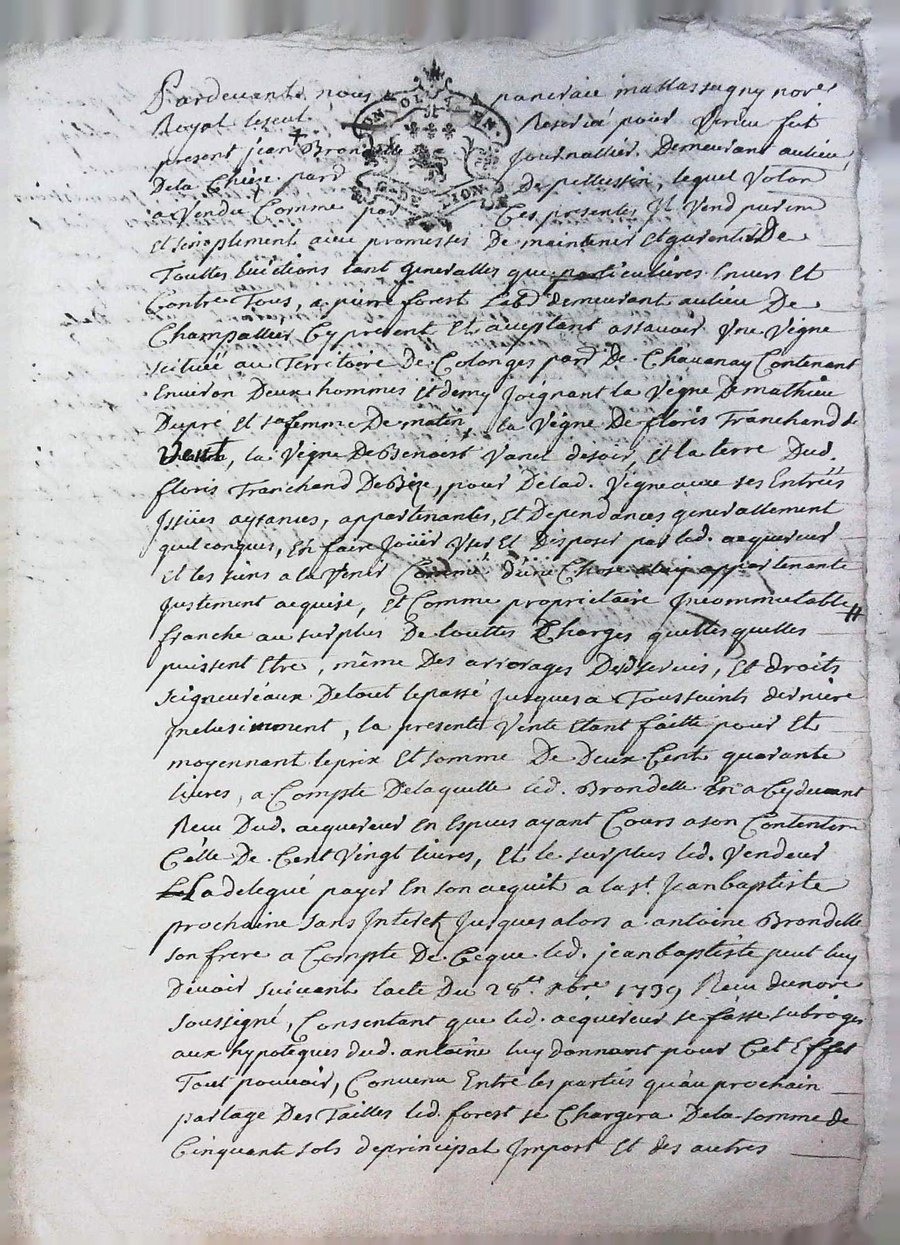 Pardevant nous pancrace mattassagny nore
Royal Reservé pour Virieu fut
present jean Brondelle Journallier Demeurant aulieu
Dela Chize parr de pellussin, lequel Volon
a Vendu Comme par Ces presentes Il Vend purem
Et simplement avec promesses De maintenir Et garentir De
Touttes Evictions tant generalles que particulieres Envers Et
Contre Tous, a pierre forest Labr demeurant aulieu De
Champallier Cy present Et aceptant assavoir Une Vigne
scituée au Territoire De Colonges parr De Chavanay Contenant
Environ Deux hommes Et demy Joignant la Vigne De mathieu
Dupré Et sa femme De matin, la Vigne De floris Tranchand de
Vent, la Vigne De Benoist Vanel de soir, Et la terre Dud.
floris Tranchand De Bize, pour De lad. Vigne avec ses Entreés
Issües aysances, appartenantes, Et Dependances generallement
quelconques, En faire Joüir User Et Disposer par led. acquereur
Et les siens a la Venir Comme d'une Chose appartenante
Justement acquise, Et Comme proprietaire Incommutable
franche au surplus De touttes Charges quelles quelles
puissent Etre, même Des arrerages Des servis, Et droits
seigneureaux De tout le passé Jusques a Toussaints derniere
Inclusivement, la presente Vente Etant faitte pour Et
moyennant le prix Et somme De Deux Cent quarante
livres, a Compte De laquelle led. Brondelle En a Cy devant
Receu Dud. acquereur En Especes ayant Cours a son Contentem
Celle De Cent Vingt livres, Et le surplus led. Vendeur
La delegué payer En son acquit a la st. Jean baptiste
prochaine sans Interest Jusques alors a antoine Brondelle
son frere a Compte De Ceque led. jean baptiste peut luy
Devoir suivant lacte Du 28e. xbre. 1739 Receu du nore
soussigné, Consentant que led. acquereur se fasse subroger
aux hypoteques dud. antoine luy donnant pour Cet Effet
Tout pouvoir, Convenu Entre les parties qu'au prochain
partage Des Tailles led. forest se Chargera De la somme de
Cinquante sols de principal Import Et des autres